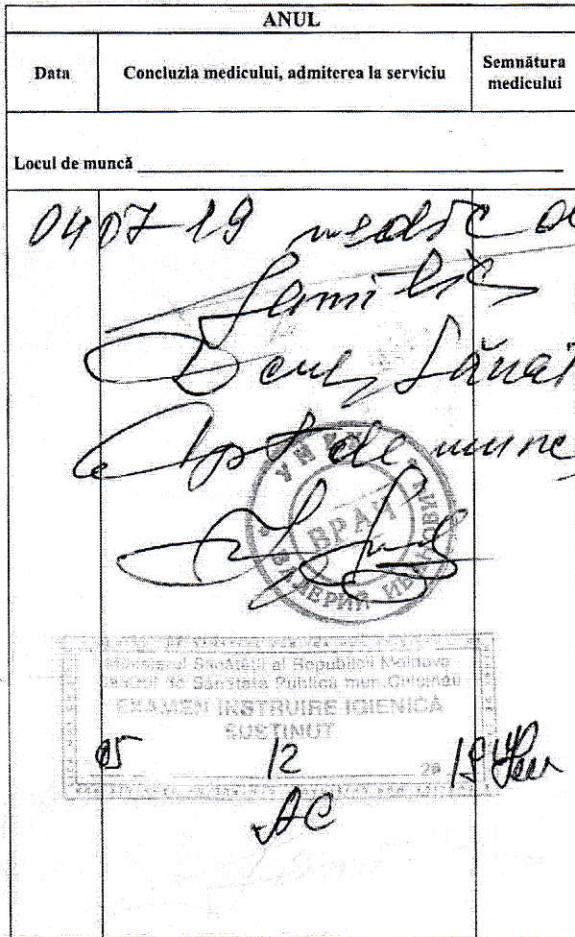 ANUL
Data
Concluzia medicului, admiterea la serviciu
Semnătura medicului
Locul de muncă
04 07 19 medic
familie
sănăt
Apt de munc
ВРАЧ
ВАЛЕРИЙ
Ministerul Sănătăţii al Republicii Moldova
de Sănătate Publică mun. Chişinău
EXAMEN INSTRUIRE IGIENICĂ
SUSŢINUT
05 12 20 19
AC